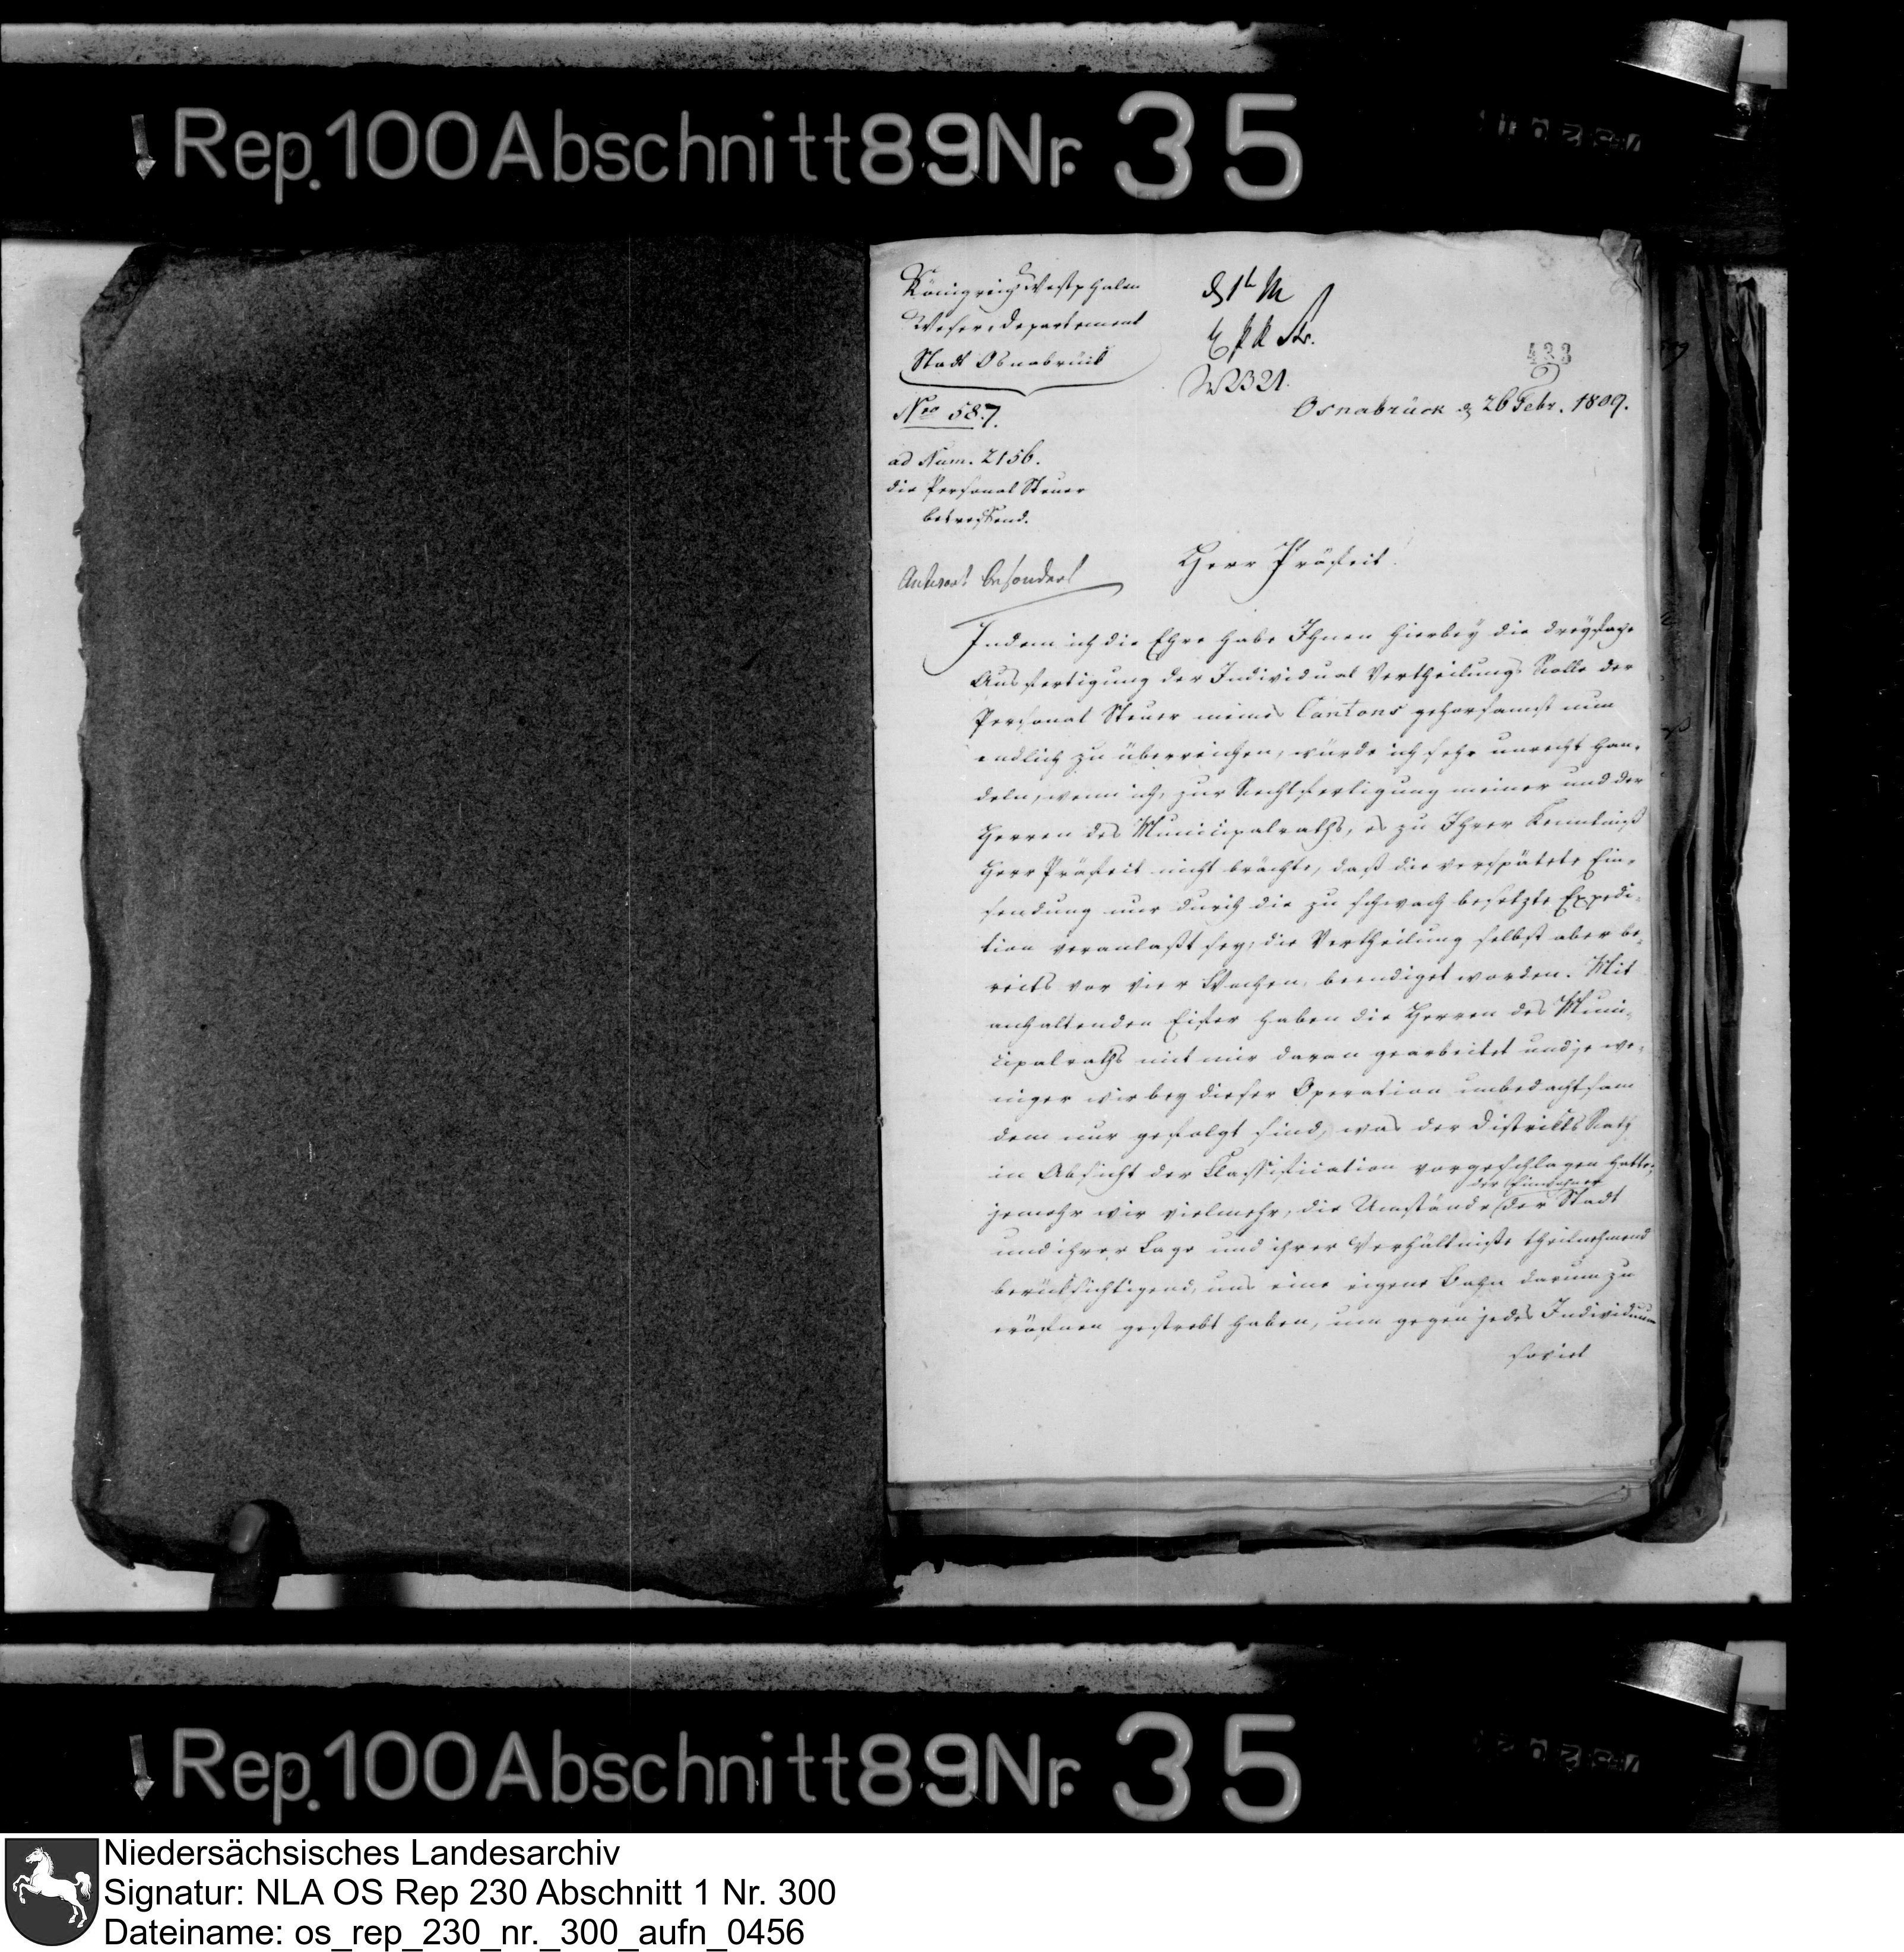 Rep. 100 Abschnitt 89 Nr. 35
Königreich Westphalen
Weser, Departement
Stadt Osnabrück
Nro 587.
ad Num. 2156.
die Personal Steuer
betreffend.
Antwort besonders
W2321.
433
Osnabrück d 26 Febr. 1809.
Herr Präfect!
Indem ich die Ehre habe Ihnen hierbey die dreyfache
Ausfertigung der Individual Vertheilungs Rolle der
Personal Steuer meines Cantons gehorsamst nun
endlich zu überreichen, würde ich sehr unrecht han-
deln, wenn ich, zur Rechtfertigung meiner und der
Herren des Municipalraths, es zu Ihrer Kenntniß
Herr Präfect nicht brächte, daß die verspätete Ein-
sendung nur durch die zu schwach besetzte Expedi-
tion veranlaßt sey; die Vertheilung selbst aber be-
reits vor vier Wochen, beendiget worden. Mit
anhaltenden Eifer haben die Herren des Muni-
cipalraths mit mir daran gearbeitet und je we-
niger wir bey dieser Operation unbedachtsam
dem nur gefolgt sind, was der Districts Rath
in Absicht der Classification vorgeschlagen hatte;
jemehr wir vielmehr, die Umstände der Einwohner der Stadt
und ihrer Lage und ihrer Verhältniße theilnehmend
berücksichtigend, uns eine eigene Bahn darum zu
eröfnen gestrebt haben, um gegen jedes Individuum
soviel
Rep. 100 Abschnitt 89 Nr. 35
Niedersächsisches Landesarchiv
Signatur: NLA OS Rep 230 Abschnitt 1 Nr. 300
Dateiname: os_rep_230_nr._300_aufn_0456